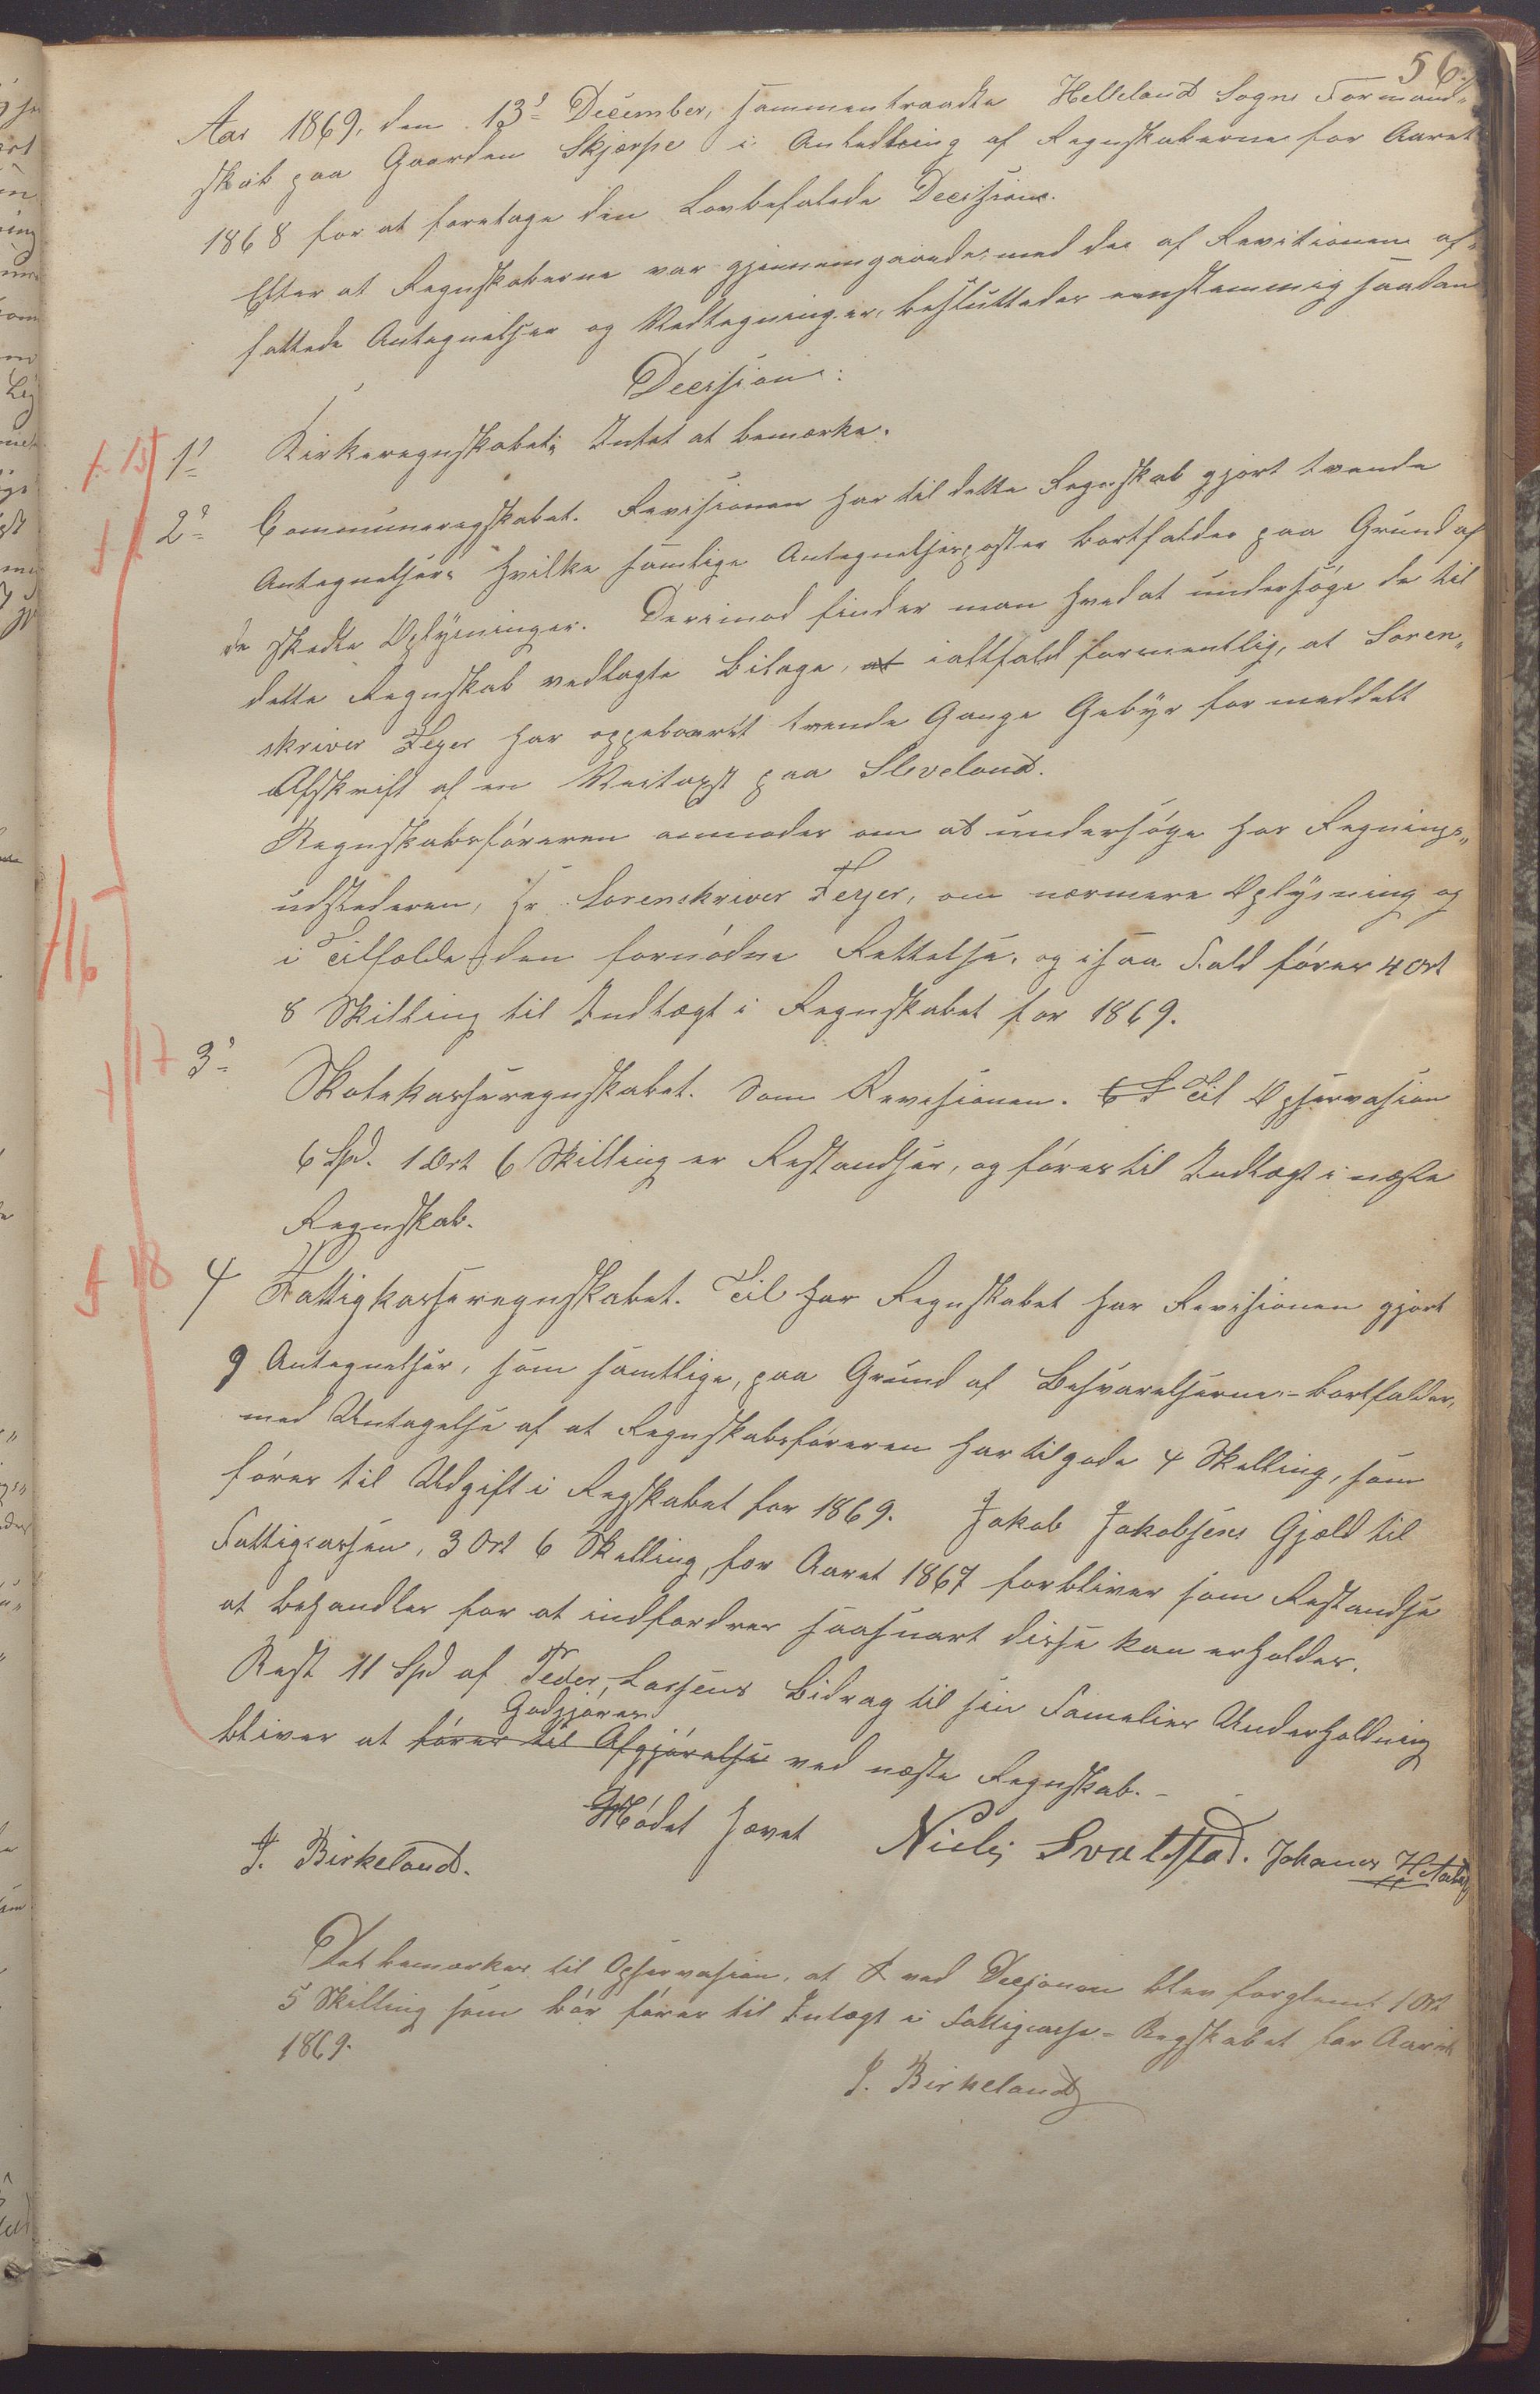 56.
Aar 1869, den 13de December, sammentraadte Helleland Sogns Formand-
skab paa Gaarden Skjerpe i Anledning af Regnskaberne for Aaret
1868 for at foretage den Lovbefalede Decision.
Efter at Regnskaberne var gjennemgaaede med de af Revitionen af-
fattede Antegnelser og Vedtegninger, besluttedes eenstemmig saadan
Decision:
f. 15 1' Kirkeregnskabet: Intet at bemærke.
2' Communeregskabet. Revisionen har til dette Regnskab gjort tvende
Antegnelser, hvilke samtlige Antegnelsesposter bortfalder paa Grund af
de skedte Oplysninger. Derimod finder man hved at undersøge de til
dette Regnskab vedlagte Bilage, at ialtfald formentlig, at Soren-
skriver Feyer har oppebaaret tvende Gange Gebyr for meddelt
Afskrift af en Veitaxt paa Sleveland.
Regnskabsføreren anmodes om at undersøge hos Regnings-
udstederen, Hr. Sorenskriver Feyer, om nærmere Oplysning og
f 16 i Tilfælde den fornødne Rettelse, og isaa Fald føres 4 Ort
8 Skilling til Indtægt i Regnskabet for 1869.
f 17 3' Skolekasseregnskabet. Som Revisionen. Til Opservasion
6 Spd. 1 Ort 6 Skilling er Restandser, og føres til Indtægt i næste
Regnskab.
f 18 4 Fattigkasseregnskabet. Til her Regnskabet har Revisionen gjort
9 Antegnelser, som samtlige, paa Grund af Besvarelserne,- bortfalder,
med Untagelse af at Regnskabsføreren har tilgode 4 Skelling, som
føres til Udgift i Regskabet for 1869. Jakob Jakobsens Gjæld til
Fattigcassen, 3 Ort 6 Skelling, for Aaret 1867 forbliver som Restandse
at behandles for at indfordres saasnart disse kan erholdes.
Rest 11 Spd af Peder Larsens Bidrag til sin Famelies Underholdning
Godgjøres
bliver at føres til Afgjørelse ved næste Regnskab.-
Mødet hævet
J. Birkeland. Niels Svalestad. Johanes
Det bemærkes til Opservasion, at ved Decjonen blev forglemt 1 Ort
5 Skilling som bør føres til Intægt i Fattigcasse-Regskabet for Aaret
1869.
J. Birkeland